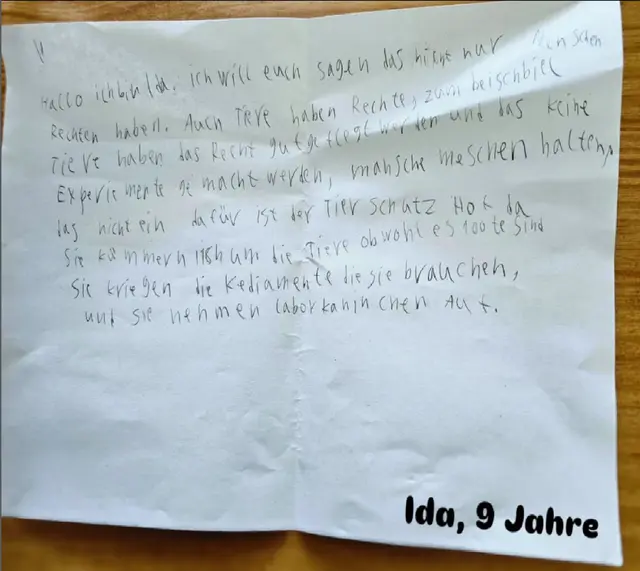 Hallo ich bin Ida. ich will euch sagen das nicht nur Menschen
Rechten haben. Auch Tiere haben Rechte, zum beischbiel
Tiere haben das Recht gut gepflegt werden und das keine
Experiemente gemacht werden, mansche meschen halten
das nicht ein dafür ist der Tier schatz Hof da
Sie kümmern sich um die Tiere obwohl es 100te sind
Sie kriegen die Kediamente die sie brauchen,
und sie nehmen laborkaninchen auf.
Ida, 9 Jahre